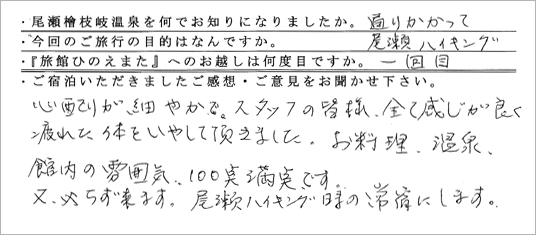 ・尾瀬檜枝岐温泉を何でお知りになりましたか。通りかかって
・今回のご旅行の目的はなんですか。尾瀬ハイキング
・『旅館ひのえまた』へのお越しは何度目ですか。一回目
・ご宿泊いただきましたご感想・ご意見をお聞かせ下さい。
心配りが細やかで。スタッフの皆様、全て感じが良く
疲れた体をいやして頂きました。お料理、温泉、
館内の雰囲気、100点満点です。
又、必らず来ます。尾瀬ハイキング時の常宿にします。